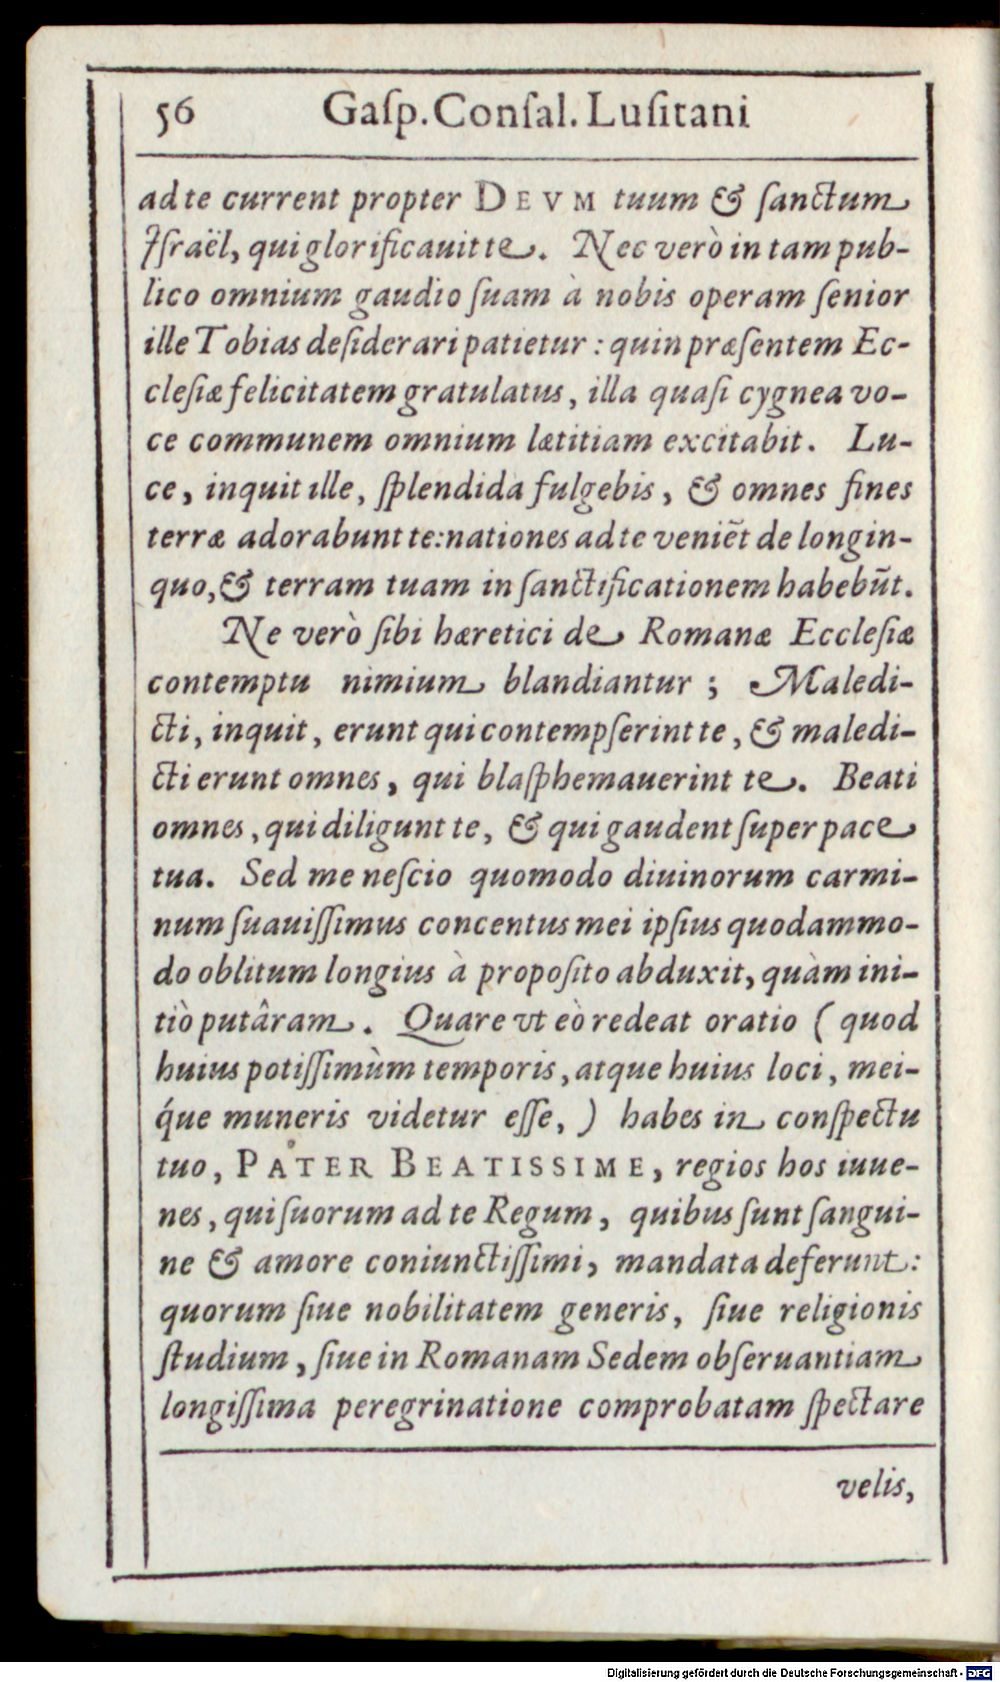 56 Gaſp. Conſal. Luſitani
ad te current propter DEVM tuum & ſanctum
Iſraël, qui glorificauit te. Nec verò in tam pub-
lico omnium gaudio ſuam à nobis operam ſenior
ille Tobias deſiderari patietur: quin præſentem Ec-
cleſiæ felicitatem gratulatus, illa quaſi cygnea vo-
ce communem omnium lætitiam excitabit. Lu-
ce, inquit ille, ſplendida fulgebis, & omnes fines
terræ adorabunt te: nationes ad te veniẽt de longin-
quo, & terram tuam in ſanctificationem habebũt.
Ne verò ſibi hæretici de Romanæ Eccleſiæ
contemptu nimium blandiantur; Maledi-
cti, inquit, erunt qui contempſerint te, & maledi-
cti erunt omnes, qui blaſphemauerint te. Beati
omnes, qui diligunt te, & qui gaudent ſuper pace
tua. Sed me neſcio quomodo diuinorum carmi-
num ſuauiſſimus concentus mei ipſius quodammo-
do oblitum longius à propoſito abduxit, quàm ini-
tiò putâram. Quare vt eò redeat oratio (quod
huius potiſſimùm temporis, atque huius loci, mei-
q́ue muneris videtur eſſe,) habes in conſpectu
tuo, PATER BEATISSIME, regios hos iuue-
nes, qui ſuorum ad te Regum, quibus ſunt ſangui-
ne & amore coniunctiſſimi, mandata deferunt:
quorum ſiue nobilitatem generis, ſiue religionis
ſtudium, ſiue in Romanam Sedem obſeruantiam
longiſſima peregrinatione comprobatam ſpectare
velis,
Digitalisierung gefördert durch die Deutsche Forschungsgemeinschaft - DFG